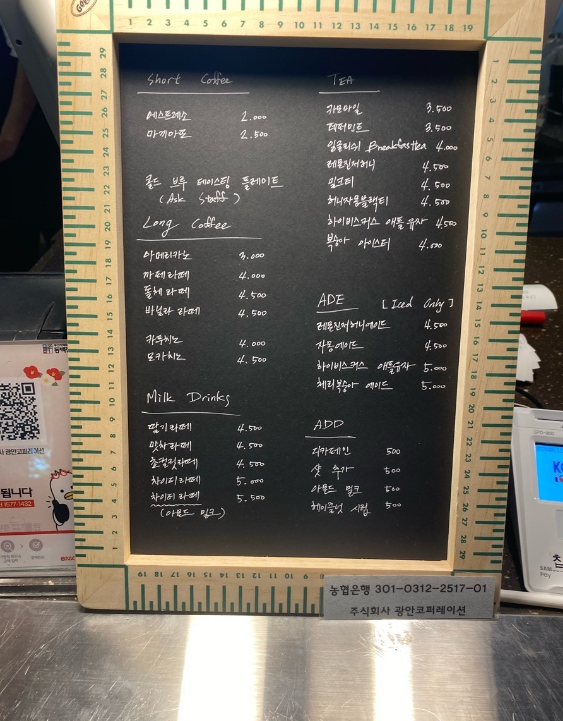 Short Coffee
에스프레소 2.000
마끼아또 2.500
콜드 브루 테이스팅 플레이트
(Ask Staff)
Long Coffee
아메리카노 3.000
까페라떼 4.000
돌체라떼 4.500
바닐라 라떼 4.500
카푸치노 4.000
모카치노 4.500
Milk Drinks
딸기라떼 4.500
말차라떼 4.500
초컬릿라떼 4.500
차이티라떼 5.000
차이티라떼 5.500
(아몬드 밀크)
TEA
카모마일 3.500
페퍼민트 3.500
잉글리쉬 Breakfastea 4.000
레몬진저허니 4.500
밀크티 4.500
허니자몽블랙티 4.500
하이비스커스 애플유자 4.500
복숭아 아이스티 4.000
ADE [Iced Only]
레몬진저허니에이드 4.500
자몽에이드 4.500
하이비스커스 애플유자 5.000
체리복숭아 에이드 5.000
ADD
디카페인 500
샷 추가 500
아몬드 밀크 500
헤이즐넛 시럽 500
농협은행 301-0312-2517-01
주식회사 광안코퍼레이션
됩니다
1577-1432